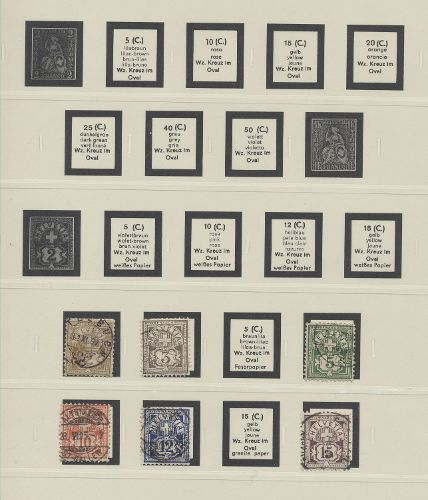 5 (C.)
lilabraun
lilac-brown
brun-lilas
lilla-bruno
Wz. Kreuz im
Oval
10 (C.)
rosa
rose
rosa
Wz. Kreuz im
Oval
15 (C.)
gelb
yellow
jaune
Wz. Kreuz im
Oval
20 (C.)
orange
arancio
Wz. Kreuz im
Oval
25 (C.)
dunkelgrün
dark green
vert foncé
Wz. Kreuz im
Oval
40 (C.)
grau
grey
gris
Wz. Kreuz im
Oval
50 (C.)
violett
violet
violetto
Wz. Kreuz im
Oval
2
5 (C.)
violettbraun
violet-brown
brun-violet
Wz. Kreuz im
Oval
weißes Papier
10 (C.)
rosa
pink
rose
Wz. Kreuz im
Oval
weißes Papier
12 (C.)
hellblau
pale blue
bleu clair
azzurro
Wz. Kreuz im
Oval
weißes Papier
15 (C.)
gelb
yellow
jaune
Wz. Kreuz im
Oval
weißes Papier
3
5 (C.)
braunlila
brown-lilac
lilas-brun
Wz. Kreuz im
Oval
Faserpapier
5
10
12
15 (C.)
gelb
yellow
jaune
Wz. Kreuz im
Oval
granite paper
HELVETIA
15